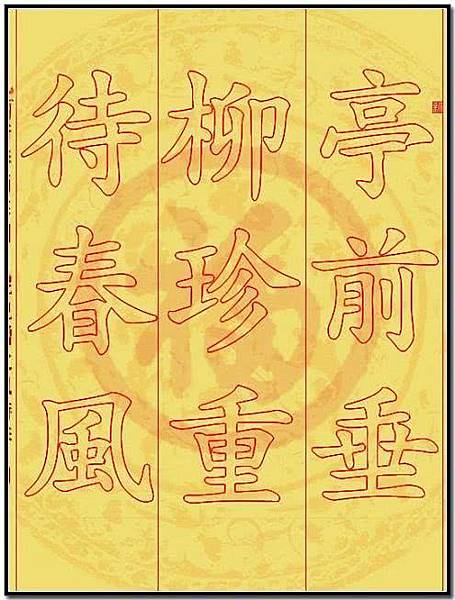 亭前垂
柳珍重
待春風